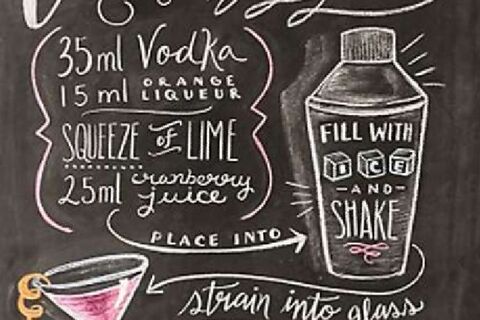 35ml Vodka
15ml ORANGE
LIQUEUR
SQUEEZE OF LIME
25ml cranberry
juice
PLACE INTO
FILL WITH
ICE
AND
SHAKE
strain into glass